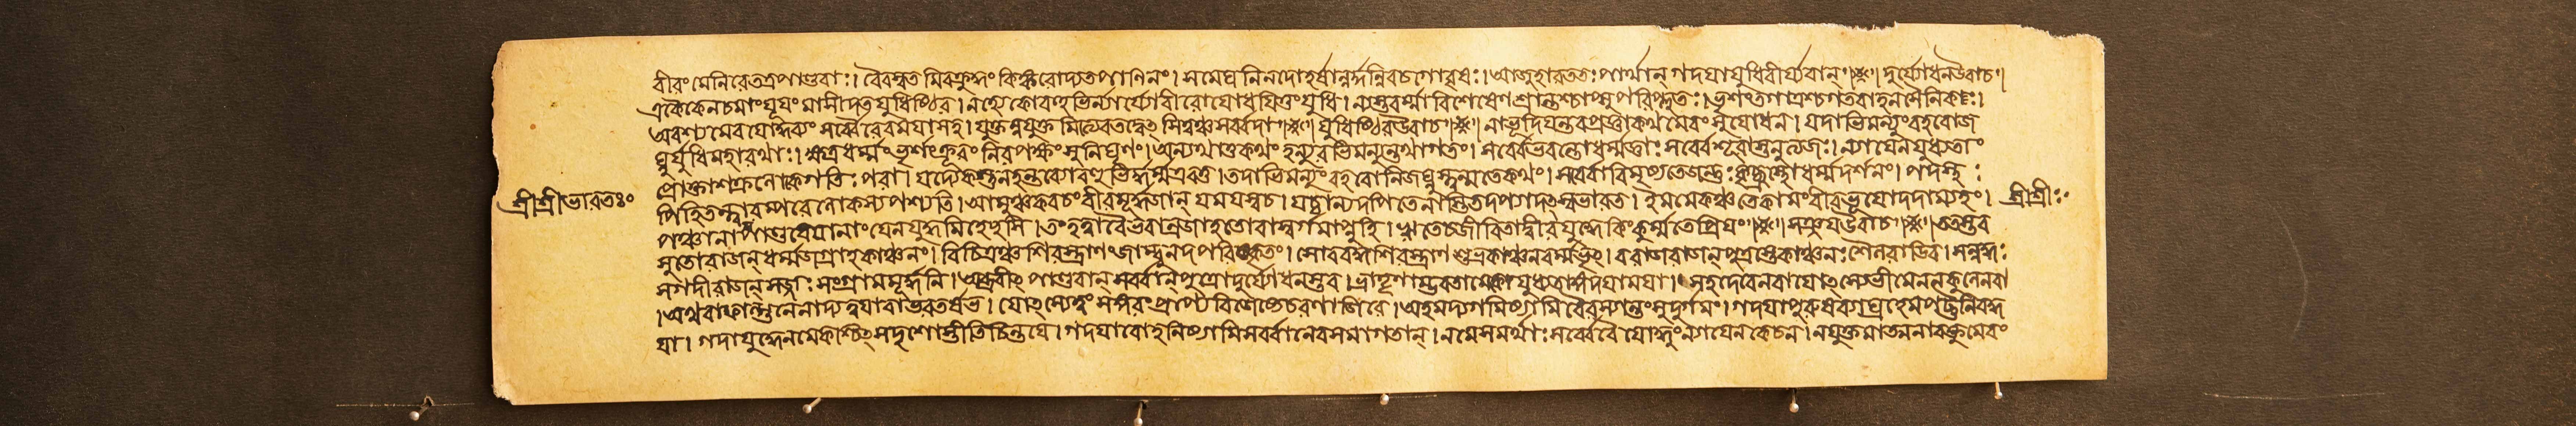 বীরং মেনিরে তত্র পাণ্ডবাঃ। বৈবস্বতমিব ক্রুদ্ধং কিঙ্করোদ্যতপাণিনং। স মেঘনিনদো হর্ষান্নর্দ্দন্নিব চ গোবৃষঃ। আজুহাব ততঃ পার্থান্ গদয়া যুধি বীর্য্যবান্॥ দুর্য্যোধন উবাচ॥
একৈকেন চ মাং যূয়ং মাসীদত যুধিষ্ঠির। নহ্যেকো বহুভির্ন্যায্যো বীরো যোধয়িতুং যুধি। ন্যস্তবর্ম্মা বিশেষেণ শ্রান্তশ্চাপ্সু পরিপ্লুতঃ। ভৃশং তগাত্রশ্চ গতবাহনসৈনিকঃ।
অবশ্যমেব যোদ্ধব্যং সর্ব্বৈরেব ময়া সহ। যুক্তন্ত্বযুক্তমিত্যেবতদ্বেৎসি ত্বঞ্চ সর্ব্বদা॥ যুধিষ্ঠির উবাচ॥ নাভূদিয়ন্তব প্রজ্ঞা কথমেবং সুযোধন। যদাভিমন্যুং বহবো জ
ঘ্নুর্যুধি মহারথাঃ। ক্ষত্রধর্ম্মং ভৃশং ক্রূরং নিরপেক্ষং সুনির্ঘৃণং। অন্যথা তু কথং হন্যুরভিমন্যুন্তথাগতং। সর্ব্বে ভবন্তো ধর্ম্মজ্ঞাঃ সর্ব্বে শূরাস্তনুত্যজঃ। ন্যায়েন যুধ্যতাং
প্রোক্তা শক্রলোকগতিঃ পরা। যদ্যেকস্তু ন হন্তব্যো বহুভির্দ্ধর্ম্ম এব তু। তদাভিমন্যুং বহবো নিজঘ্নুস্ত্বন্মতে কথং। সর্ব্বো বিমৃষ্যতে জন্তুঃ কৃচ্ছ্রস্থো ধর্ম্মদর্শনং। পদস্থঃ
শ্রীশ্রীভারতঃ পিহিতন্দ্বারম্পরলোকস্য পশ্যতি। আমুঞ্চ কবচং বীর মূর্দ্ধজান্ যময়স্ব চ। যচ্চান্যদপি তে নাস্তি তদপ্যাদৎস্ব ভারত। ইমমেকঞ্চ তে কামং বীর ভূয়ো দদাম্যহং। শ্রীশ্রীঃ
পঞ্চানাং পাণ্ডবেয়ানাং যেন যুদ্ধমিহেচ্ছসি। তং হত্বা বৈ ভবান্রাজা হতো বা স্বর্গমাপ্নুহি। ঋতে চ জীবিতাদ্বীর যুদ্ধে কিং কুর্ম্ম তে প্রিয়ং॥ সঞ্জয় উবাচ॥ ততস্তব
সুতো রাজন্ ধর্ম্মজগ্রাহ কাঞ্চনং। বিচিত্রঞ্চ শিরস্ত্রাণং জাম্বুনদপরিষ্কৃতং। সোববদ্ধশিরস্ত্রাণ শুভ্রকাঞ্চনবর্ম্মভৃৎ। ররাজ রাজন্ পুত্রস্তে কাঞ্চনঃ শৈলরাডিব। সন্নদ্ধঃ
সগদী রাজন্ সজ্জঃ সংগ্রামমূর্দ্ধনি। অব্রবীৎ পাণ্ডবান্ সর্ব্বান্ পুত্রো দুর্য্যোধনস্তব। ভ্রাতৄণাম্ভবতামেকো যুধ্যতাং গদয়া ময়া। সহদেবেন বা যোৎস্যে ভীমেন নকুলেন বা
।অথবা ফাল্গুনেনাদ্য ত্বয়া বা ভরতর্ষভ। যোৎস্যেহং সঙ্গরং প্রাপ্য বিজেষ্যে চ রণাজিরে। অহমদ্য গমিষ্যামি বৈরস্যান্তং সুদুর্গমং। গদয়া পুরুষব্যাঘ্র হেমপট্টনিবদ্ধ
য়া। গদাযুদ্ধে ন মে কশ্চিৎ সদৃশোস্তীতি চিন্তয়ে। গদয়া বো হনিষ্যামি সর্ব্বানেব সমাগতান্। ন মে সমর্থাঃ সর্ব্বে বৈ যোদ্ধুং ন্যায়েন কেচন। ন যুক্তমাত্মনা বক্তুমেবং